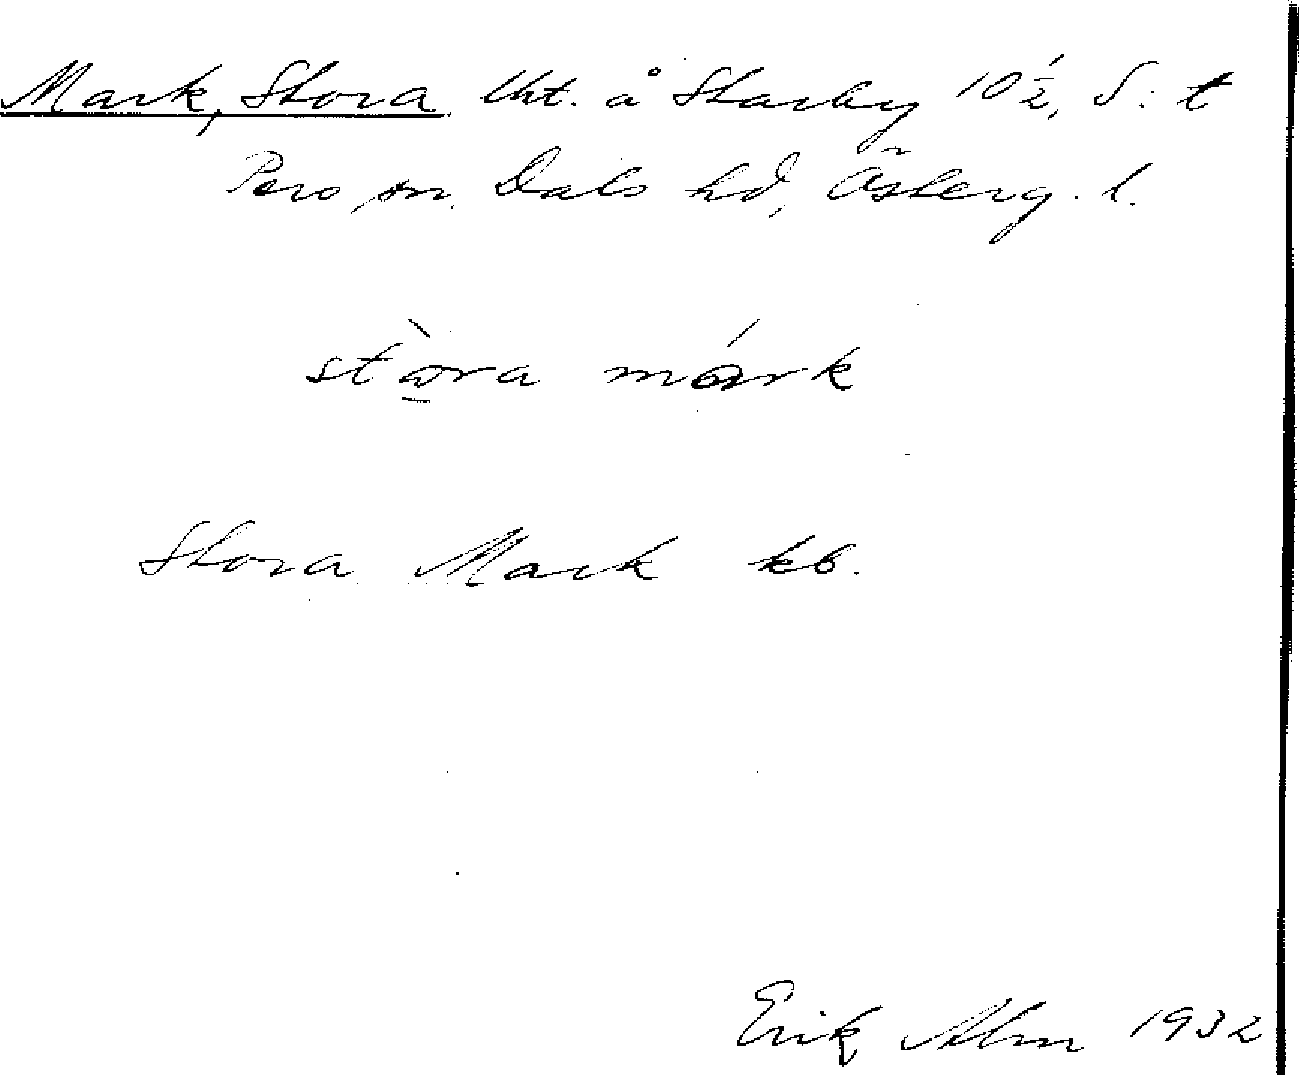 Mark, Stora lht. å Starby 10½, S:t
Pers sn. Dals hd, Österg. l.
stòra márk
Stora Mark kb.
Erik Alm 1932